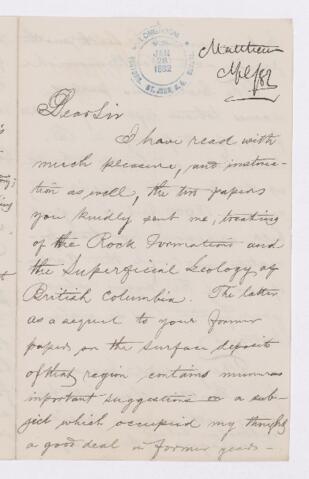 JAN
28
1882
ST. JOHN, N. B.
Matthew
Dear Sir
I have read with
much pleasure, and instruc-
tion as well, the two papers
you kindly sent me, treating
of the Rock Formations and
the Superficial Geology of
British Columbia. The latter
as a sequel to your former
paper on the surface deposits
of that region contains numerous
important suggestions on a sub-
ject which occupied my thoughts
a good deal in former years -